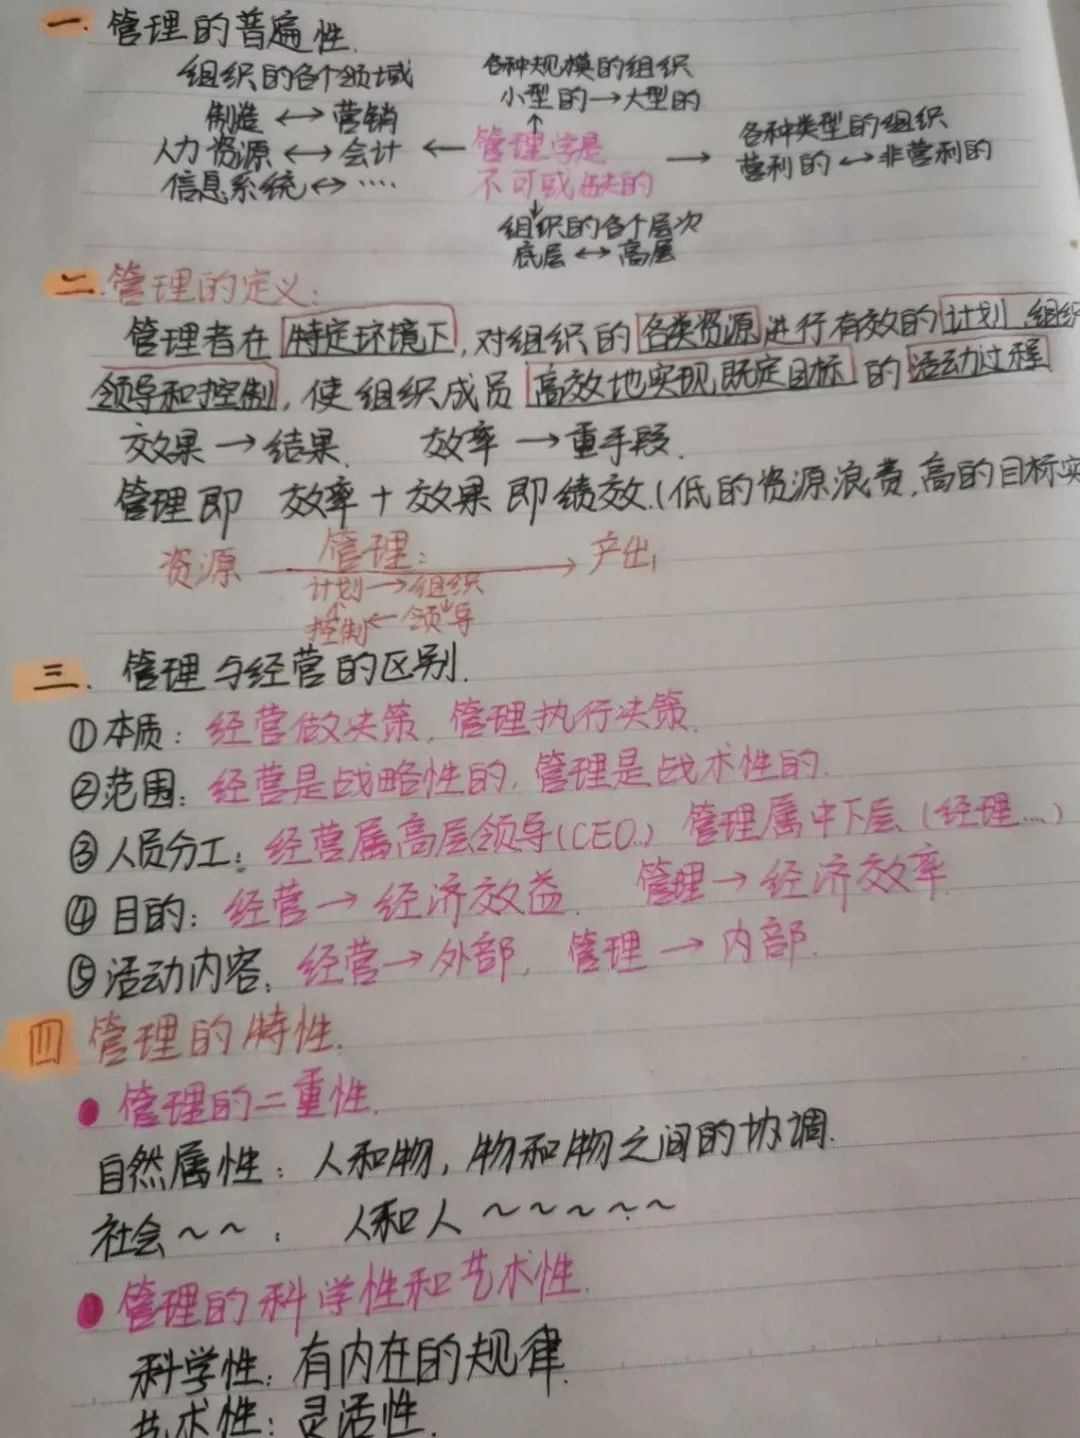 一. 管理的普遍性.
组织的各个领域
制造 ↔ 营销
人力资源 ↔ 会计 ←
信息系统 ↔ ····
各种规模的组织
小型的→大型的
↑
管理学是
不可或缺的
→
各种类型的组织
营利的 ↔ 非营利的
↓
组织的各个层次
底层 ↔ 高层
二. 管理的定义:
管理者在特定环境下, 对组织的各类资源进行有效的计划、组织
领导和控制, 使组织成员高效地实现既定目标的活动过程
效果 → 结果. 效率 → 重手段.
管理即 效率 + 效果 即绩效.(低的资源浪费,高的目标实
资源 管理: → 产出,
计划 → 组织
↑ ↓
控制 ← 领导
三. 管理与经营的区别.
①本质: 经营做决策, 管理执行决策.
②范围: 经营是战略性的, 管理是战术性的.
③人员分工: 经营属高层领导(CEO..) 管理属中下层 (经理....)
④目的: 经营 → 经济效益. 管理 → 经济效率.
⑤活动内容: 经营 → 外部, 管理 → 内部.
四 管理的特性.
● 管理的二重性.
自然属性: 人和物, 物和物之间的协调.
社会～～: 人和人～～～～～
● 管理的科学性和艺术性.
科学性: 有内在的规律.
艺术性: 灵活性.